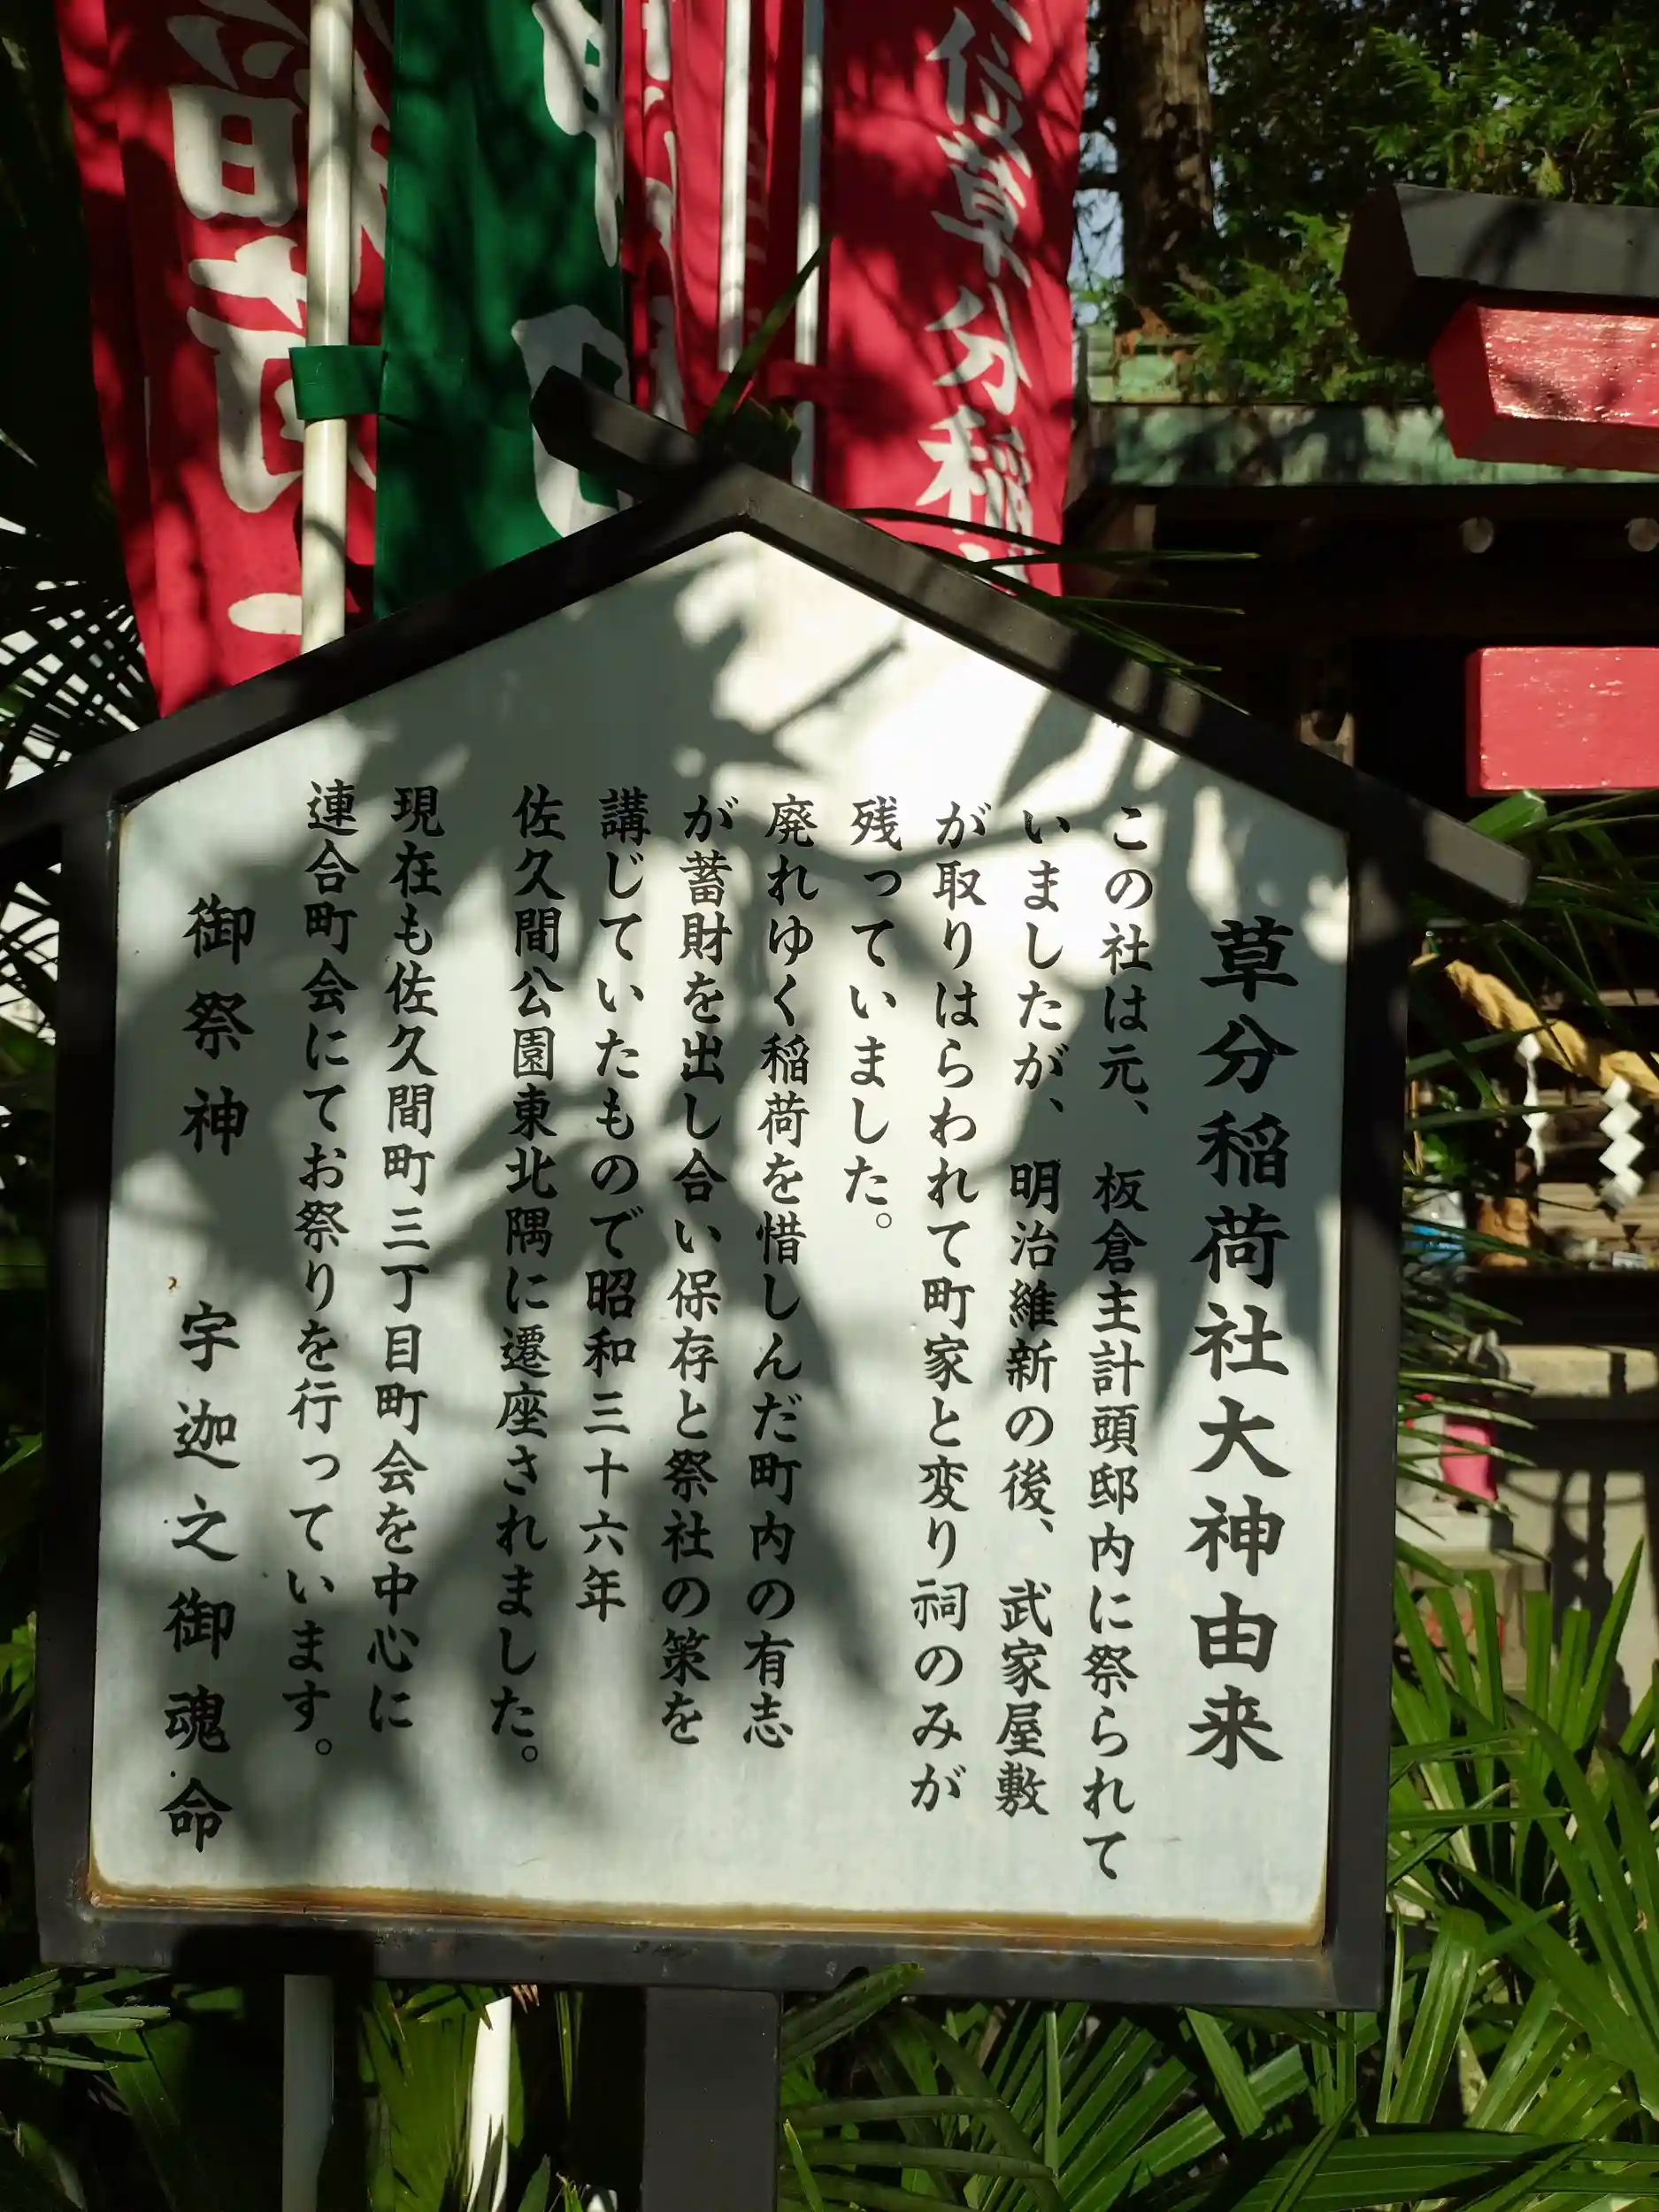 草分稲荷社大神由来
この社は元、板倉主計頭邸内に祭られて
いましたが、明治維新の後、武家屋敷
が取りはらわれて町家と変り祠のみが
残っていました。
廃れゆく稲荷を惜しんだ町内の有志
が蓄財を出し合い保存と祭社の策を
講じていたもので昭和三十六年
佐久間公園東北隅に遷座されました。
現在も佐久間町三丁目町会を中心に
連合町会にてお祭りを行っています。
御祭神 宇迦之御魂命
位草分稲